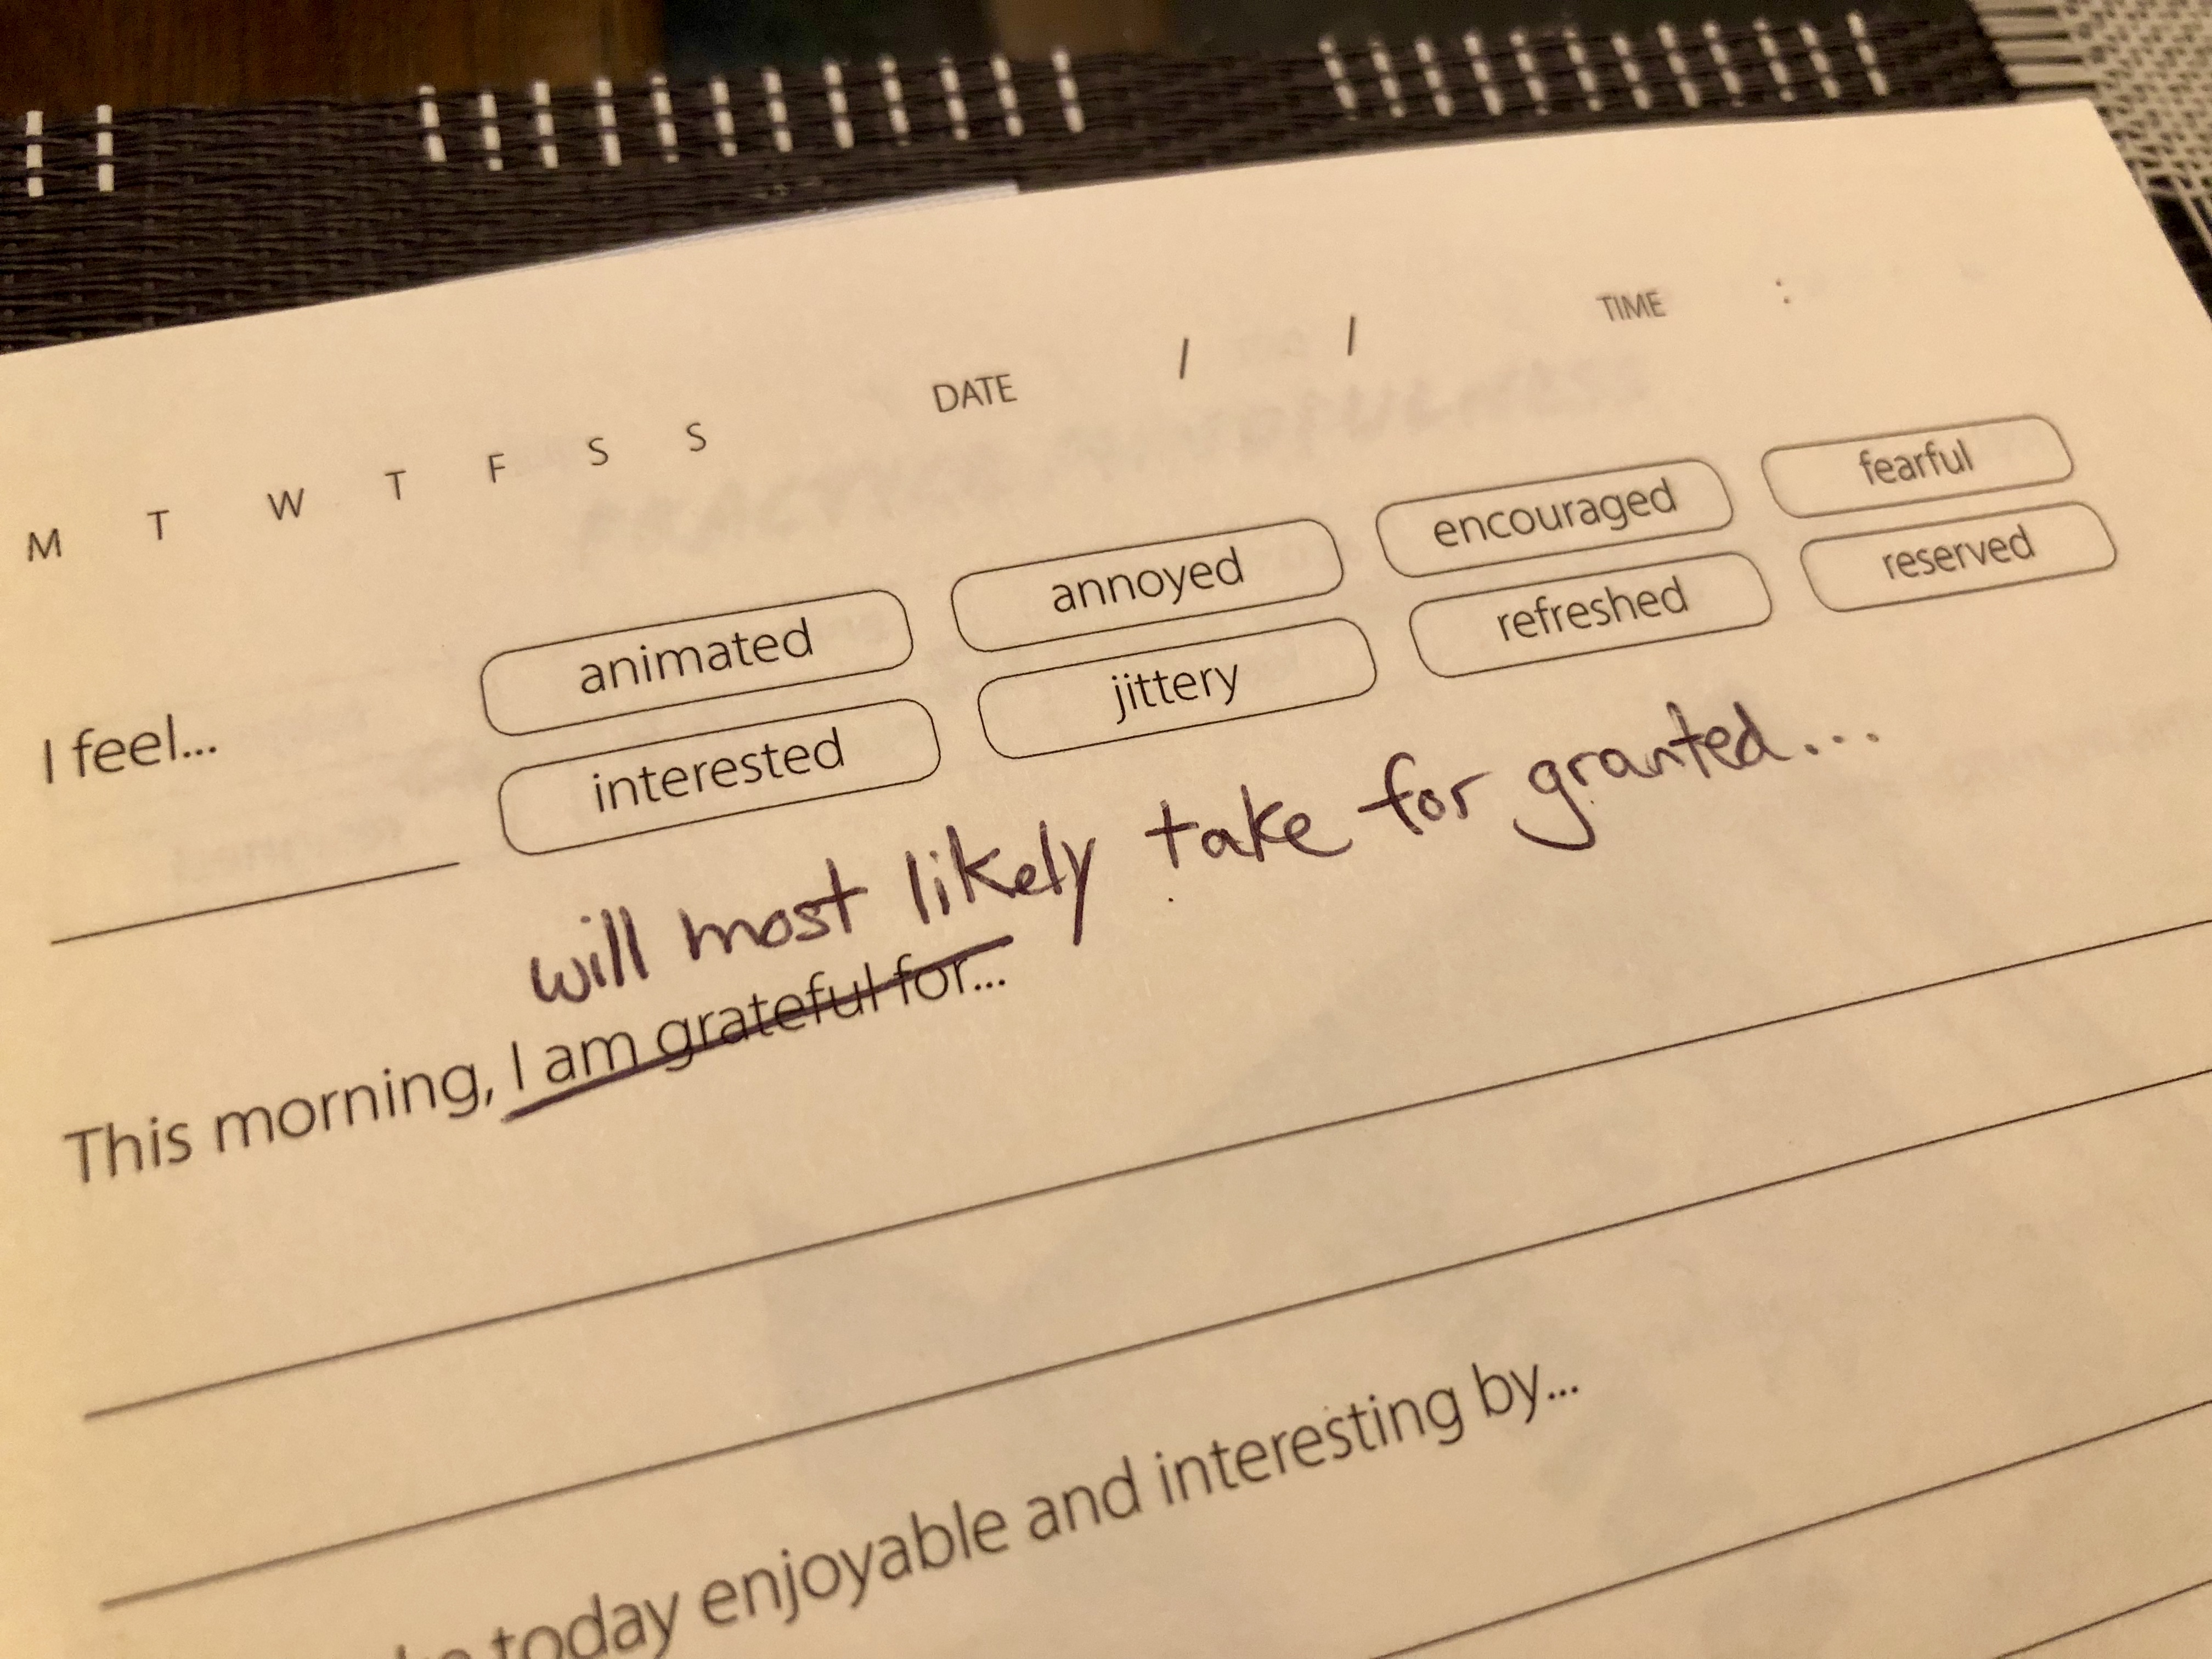 M T W T F S S DATE / / TIME :
I feel... animated annoyed encouraged fearful
interested jittery refreshed reserved
will most likely take for granted...
This morning, I am grateful for...
today enjoyable and interesting by...